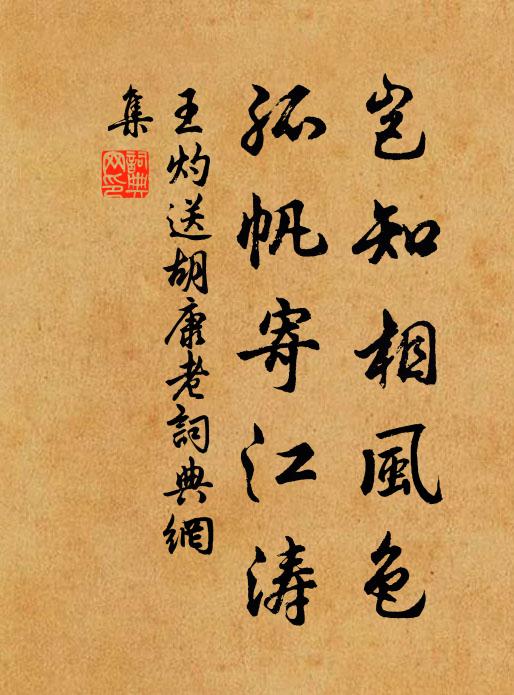 豈知相風色
孤帆寄江濤
王灼送胡康老詞典網
集
詞典
网印